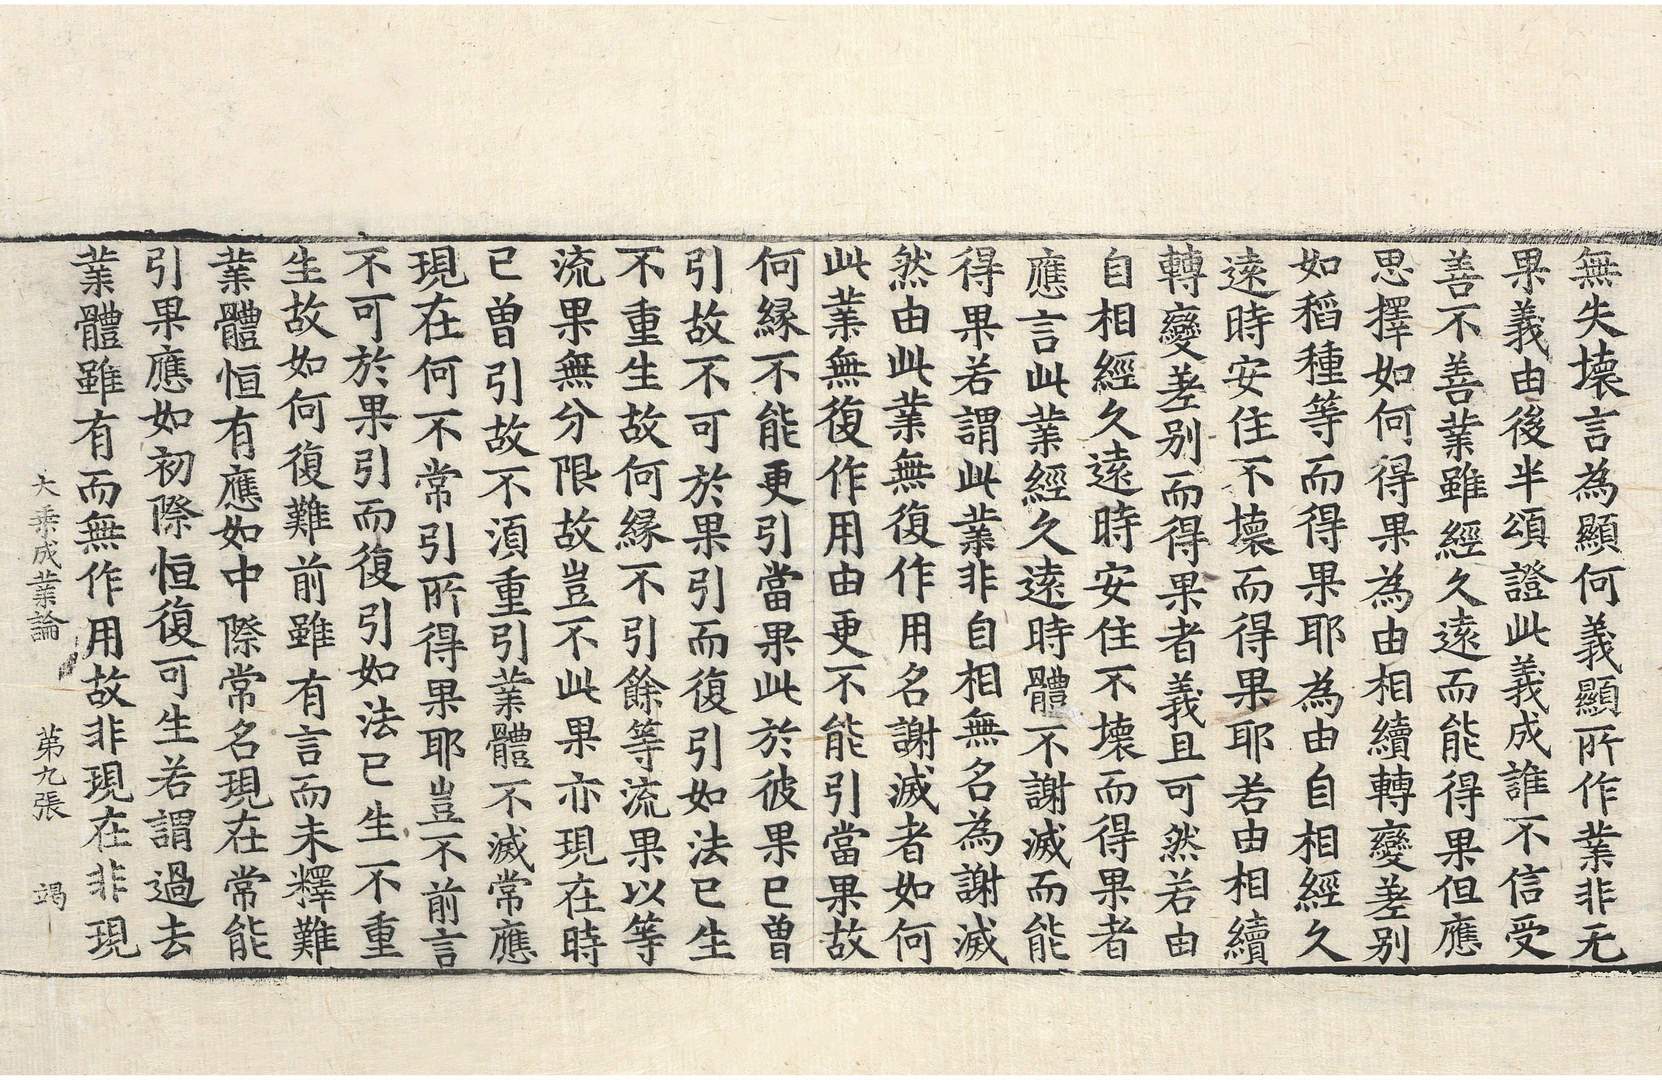 無失壞言為顯何義顯所作業非无
果義由後半頌證此義成誰不信受
善不善業雖經久遠而能得果但應
思擇如何得果為由相續轉變差別
如稻種等而得果耶為由自相經久
遠時安住不壞而得果耶若由相續
轉變差別而得果者義且可然若由
自相經久遠時安住不壞而得果者
應言此業經久遠時體不謝滅而能
得果若謂此業非自相無名為謝滅
然由此業無復作用名謝滅者如何
此業無復作用由更不能引當果故
何緣不能更引當果此於彼果已曾
引故不可於果引而復引如法已生
不重生故何緣不引餘等流果以等
流果無分限故豈不此果亦現在時
已曾引故不湏重引業體不滅常應
現在何不常引所得果耶豈不前言
不可於果引而復引如法已生不重
生故如何復難前雖有言而未釋難
業體恒有應如中際常名現在常能
引果應如初際恒復可生若謂過去
業體雖有而無作用故非現在非現
大乘成業論 第九張 竭